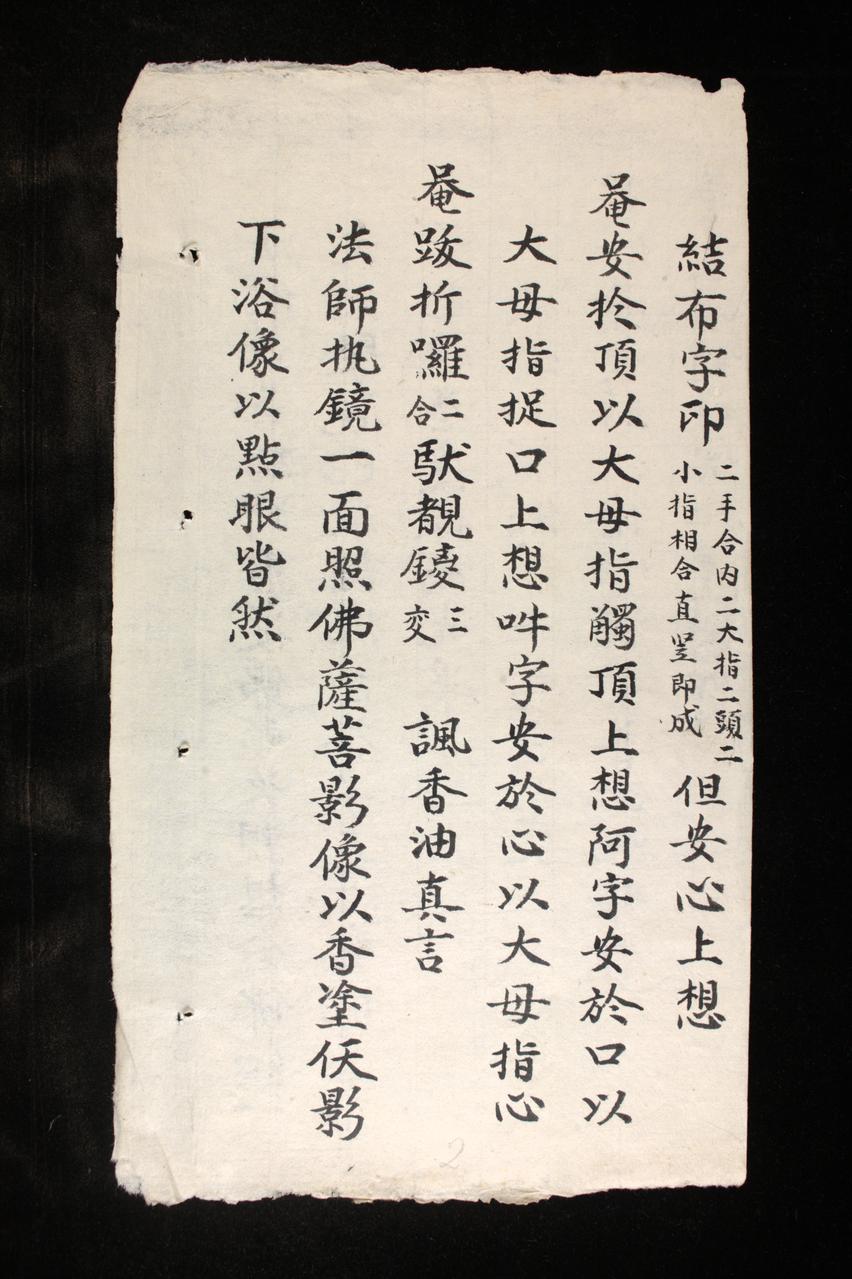 結布字印二手合内二大指二頭二小指相合直竪即成但安心上想
唵安扵頂以大母指觸頂上想阿字安於口以
大母指捉口上想吽字安於心以大母指心
唵跋折囉二合馱覩鑁三交 諷香油真言
法師执鏡一面照佛薩菩影像以香塗仸影
下浴像以點眼皆然
2